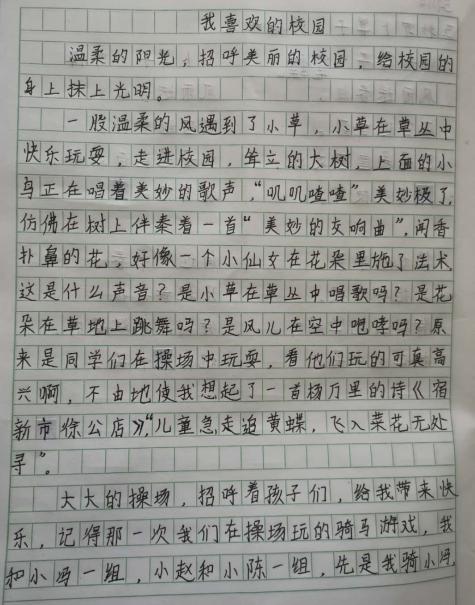 我喜欢的校园
温柔的阳光，招呼美丽的校园，给校园的
身上抹上光明。
一股温柔的风遇到了小草，小草在草丛中
快乐玩耍，走进校园，耸立的大树，上面的小
鸟正在唱着美妙的歌声，“叽叽喳喳”美妙极了，
仿佛在树上伴奏着一首“美妙的交响曲”，闻香
扑鼻的花，好像一个小仙女在花朵里施了法术，
这是什么声音？是小草在草丛中唱歌吗？是花
朵在草地上跳舞吗？是风儿在空中咆哮吗？原
来是同学们在操场中玩耍，看他们玩的可真高
兴啊，不由地使我想起了一首杨万里的诗《宿
新市徐公店》，“儿童急走追黄蝶，飞入菜花无处
寻”。
大大的操场，招呼着孩子们，给我带来快
乐，记得那一次我们在操场玩的骑马游戏，我
和小冯一组，小赵和小陈一组，先是我骑小冯，